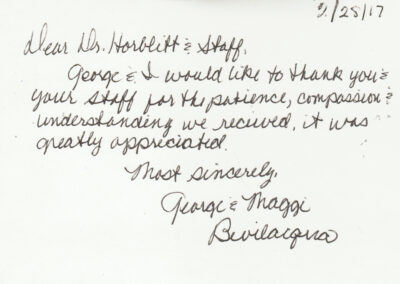 2/28/17
Dear Dr. Horblitt & Staff,
George & I would like to thank you &
your staff for the patience, compassion &
understanding we recieved, it was
greatly appriciated.
Most sincerely,
George & Maggi
Bevilacqua